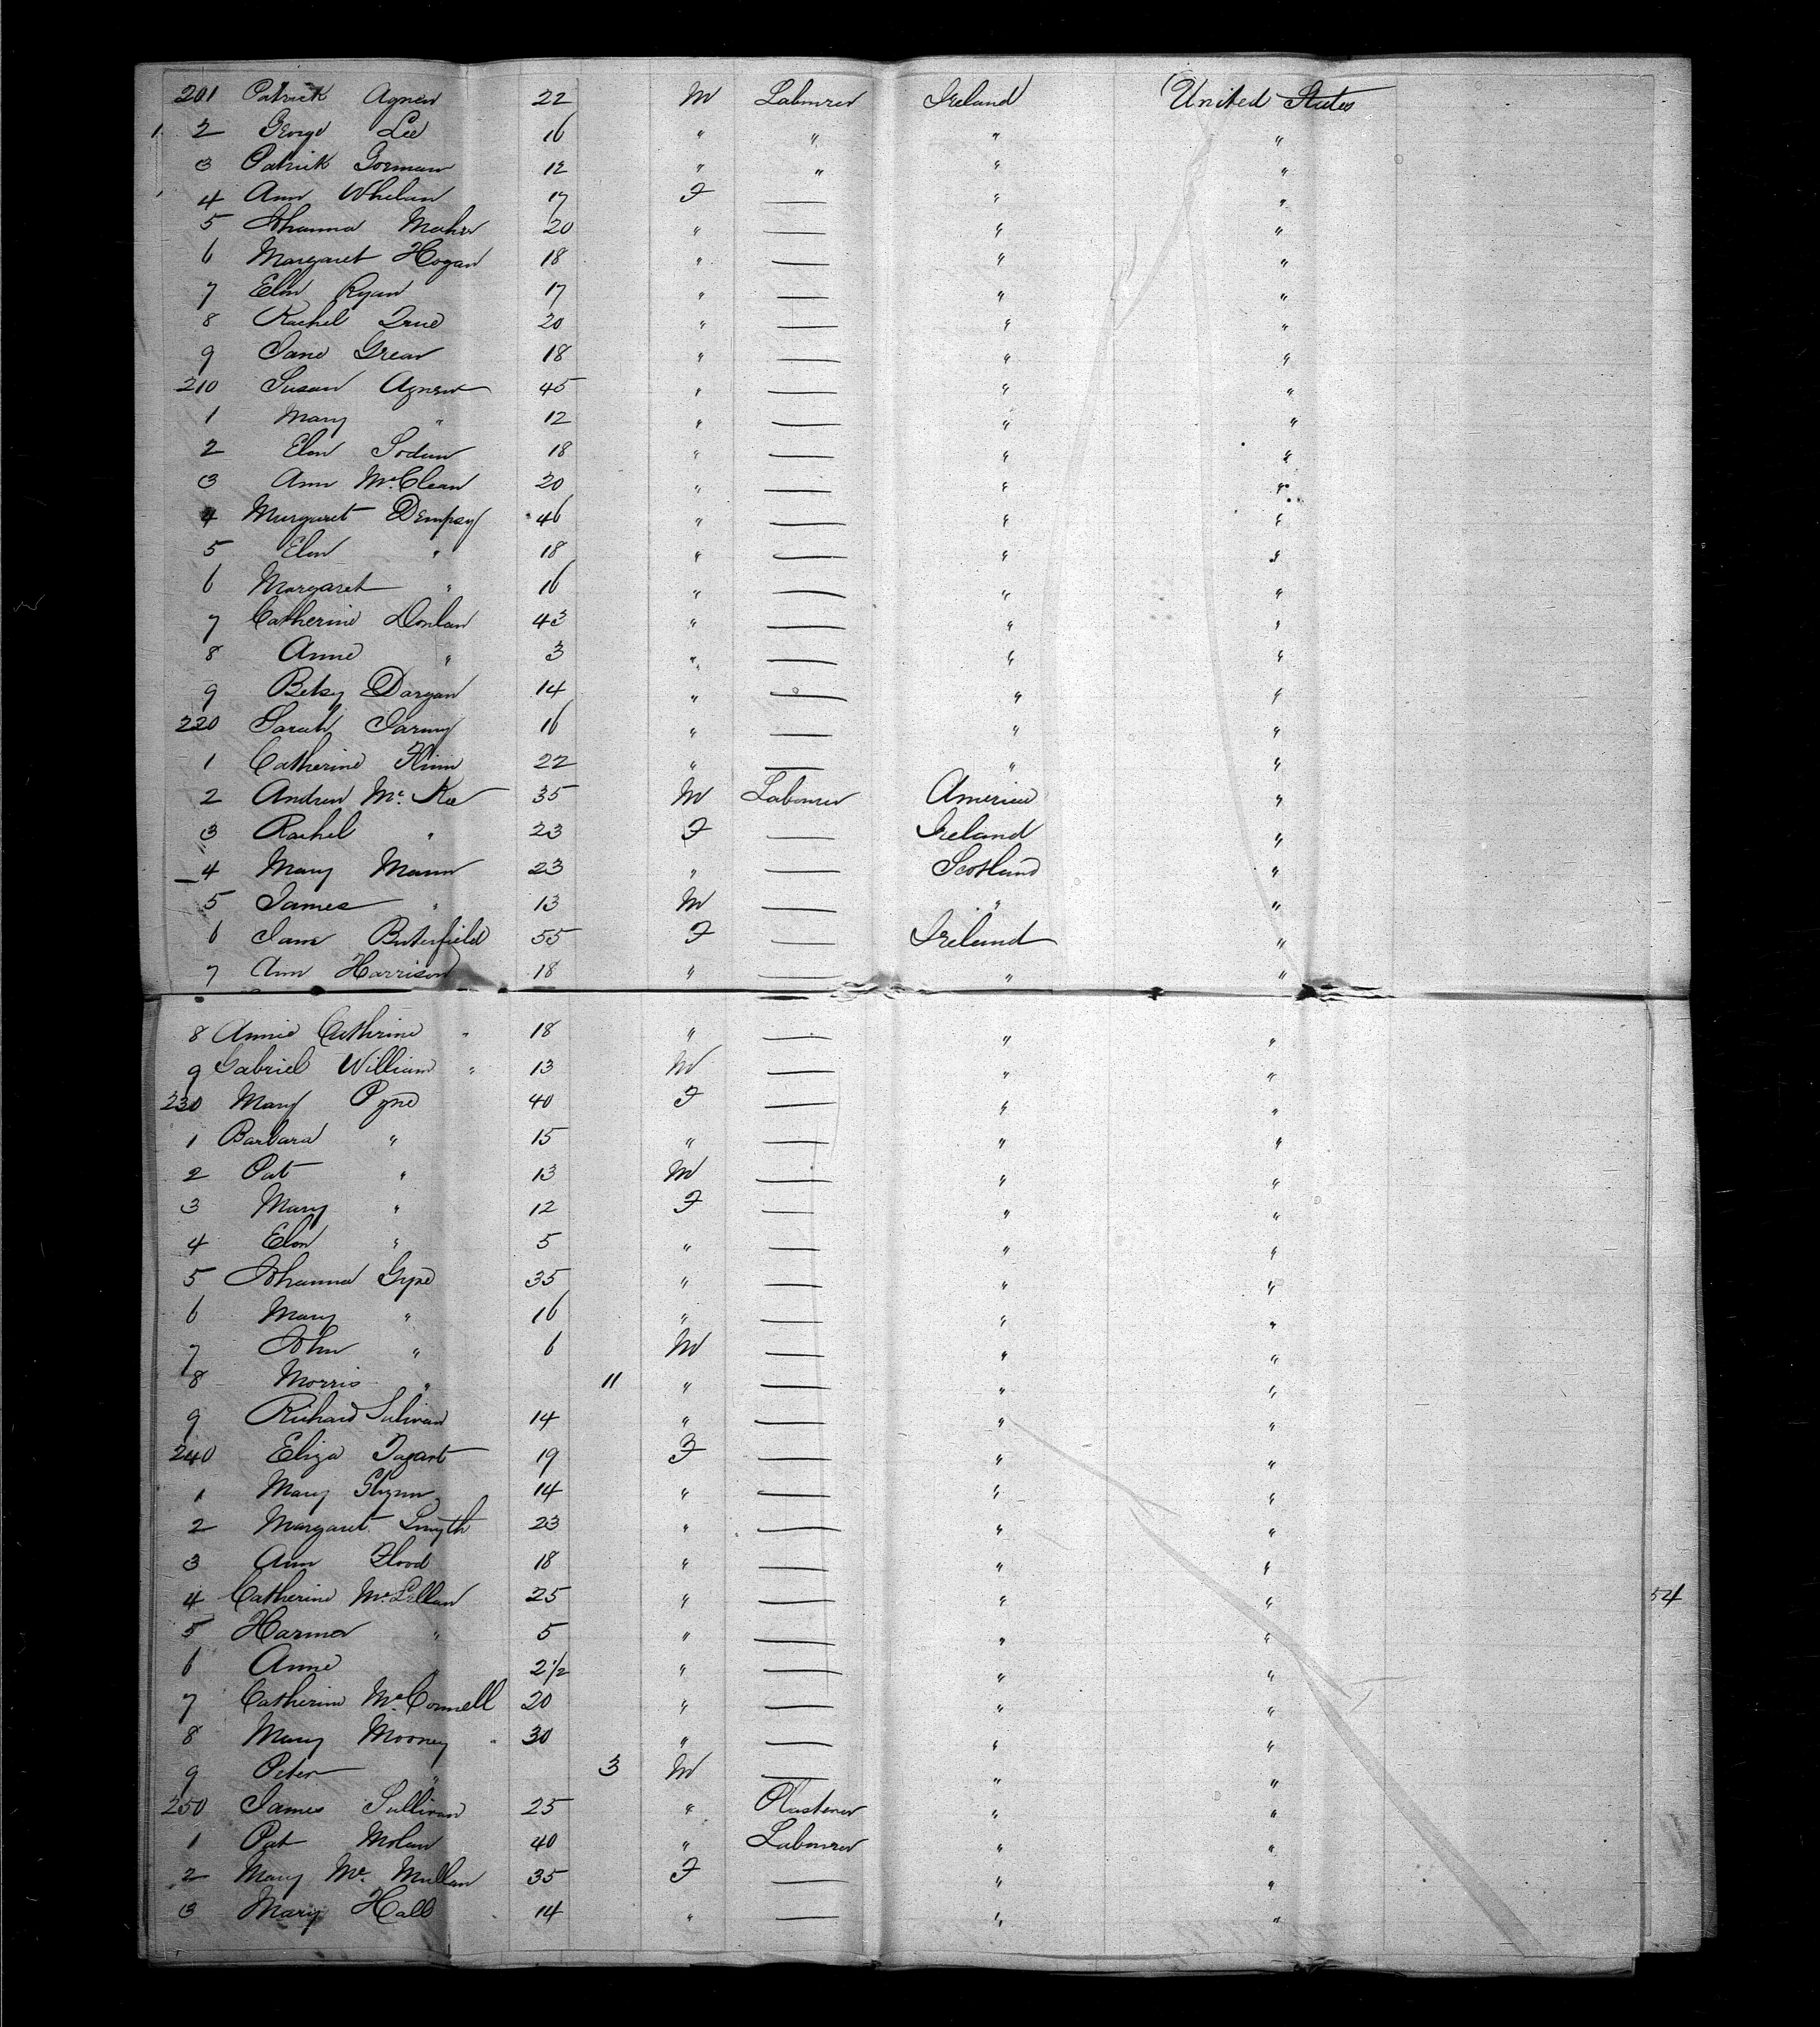 201 Patrick Agnew 22 M Labourer Ireland United States
2 George Lee 16 " " " "
3 Patrick Gorman 12 " " " "
4 Ann Whelan 17 F — " "
5 Johanna Maher 20 " — " "
6 Margaret Hogan 18 " — " "
7 Elen Ryan 17 " — " "
8 Rachel True 20 " — " "
9 Jane Grear 18 " — " "
210 Susan Agnew 45 " — " "
1 Mary " 12 " — " "
2 Elen Sodun 18 " — " "
3 Ann McClean 20 " — " "
4 Margaret Dempsy 46 " — " "
5 Elen " 18 " — " "
6 Margaret " 16 " — " "
7 Catherine Donlan 43 " — " "
8 Anne " 3 " — " "
9 Betsy Dargan 14 " — " "
220 Sarah 16 " — " "
1 Catherine Flinn 22 " — " "
2 Andrew Mc Kee 35 M Labourer America "
3 Rachel " 23 F — Ireland "
4 Mary Mann 23 " — Scotland "
5 James " 13 M — " "
6 Jane Buterfield 55 F — Ireland "
7 Ann Harrison 18 " — " "
8 Annie Cathrine " 18 " — " "
9 Gabriel William " 13 M — " "
230 Mary Pyne 40 F — " "
1 Barbara " 15 " — " "
2 Pat " 13 M — " "
3 Mary " 12 F — " "
4 Elen " 5 " — " "
5 Johanna Gype 35 " — " "
6 Mary " 16 " — " "
7 John " 6 M — " "
8 Morris " 11 " — " "
9 Richard Sulivan 14 " — " "
240 Eliza Tagart 19 F — " "
1 Mary Glynn 14 " — " "
2 Margaret Smyth 23 " — " "
3 Ann Flood 18 " — " "
4 Catherine McLellan 25 " — " " 54
5 Hanna " 5 " — " "
6 Anne " 2 1/2 " — " "
7 Catherine McConnell 20 " — " "
8 Mary Mooney 30 " — " "
9 Peter " 3 M — " "
250 James Sullivan 25 " Plasterer " "
1 Pat Molan 40 " Labourer " "
2 Mary Mc Mullan 35 F — " "
3 Mary Hall 14 " — " "